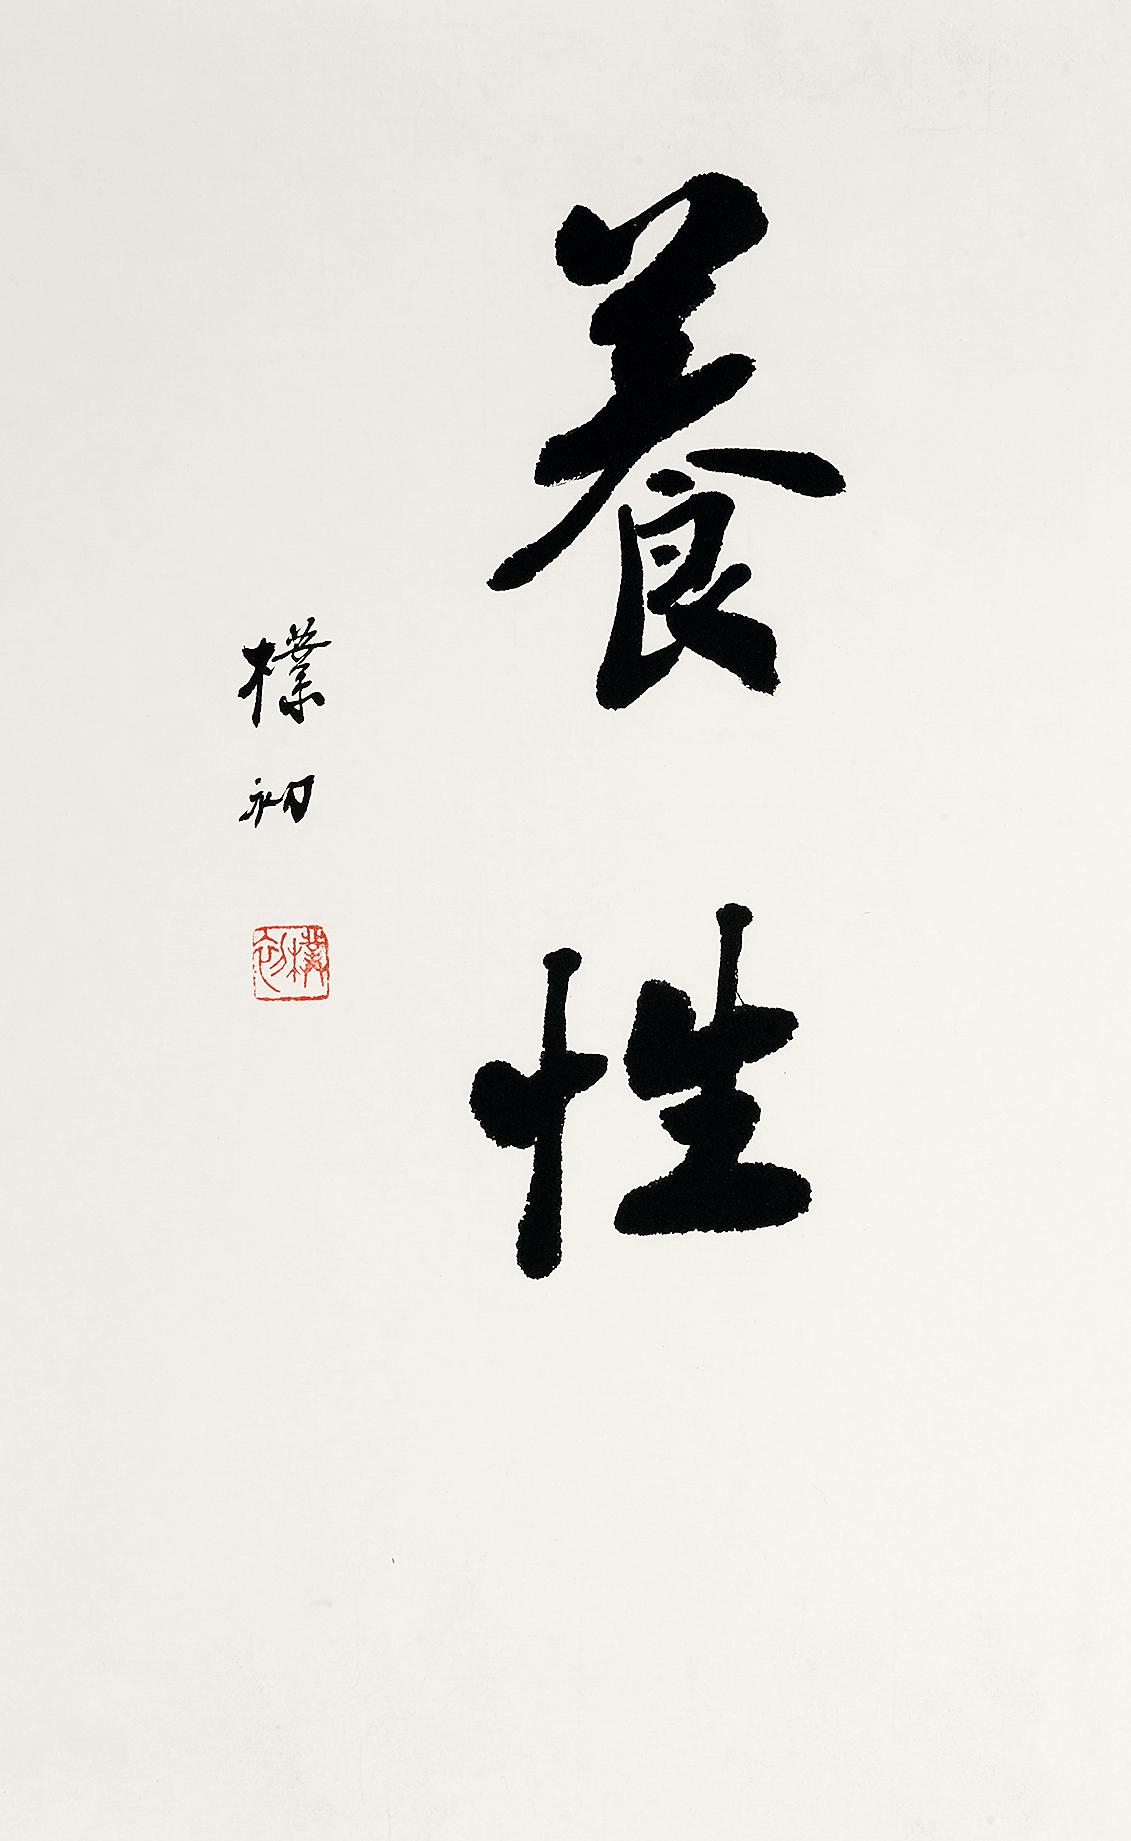 養性
樸初
樸初